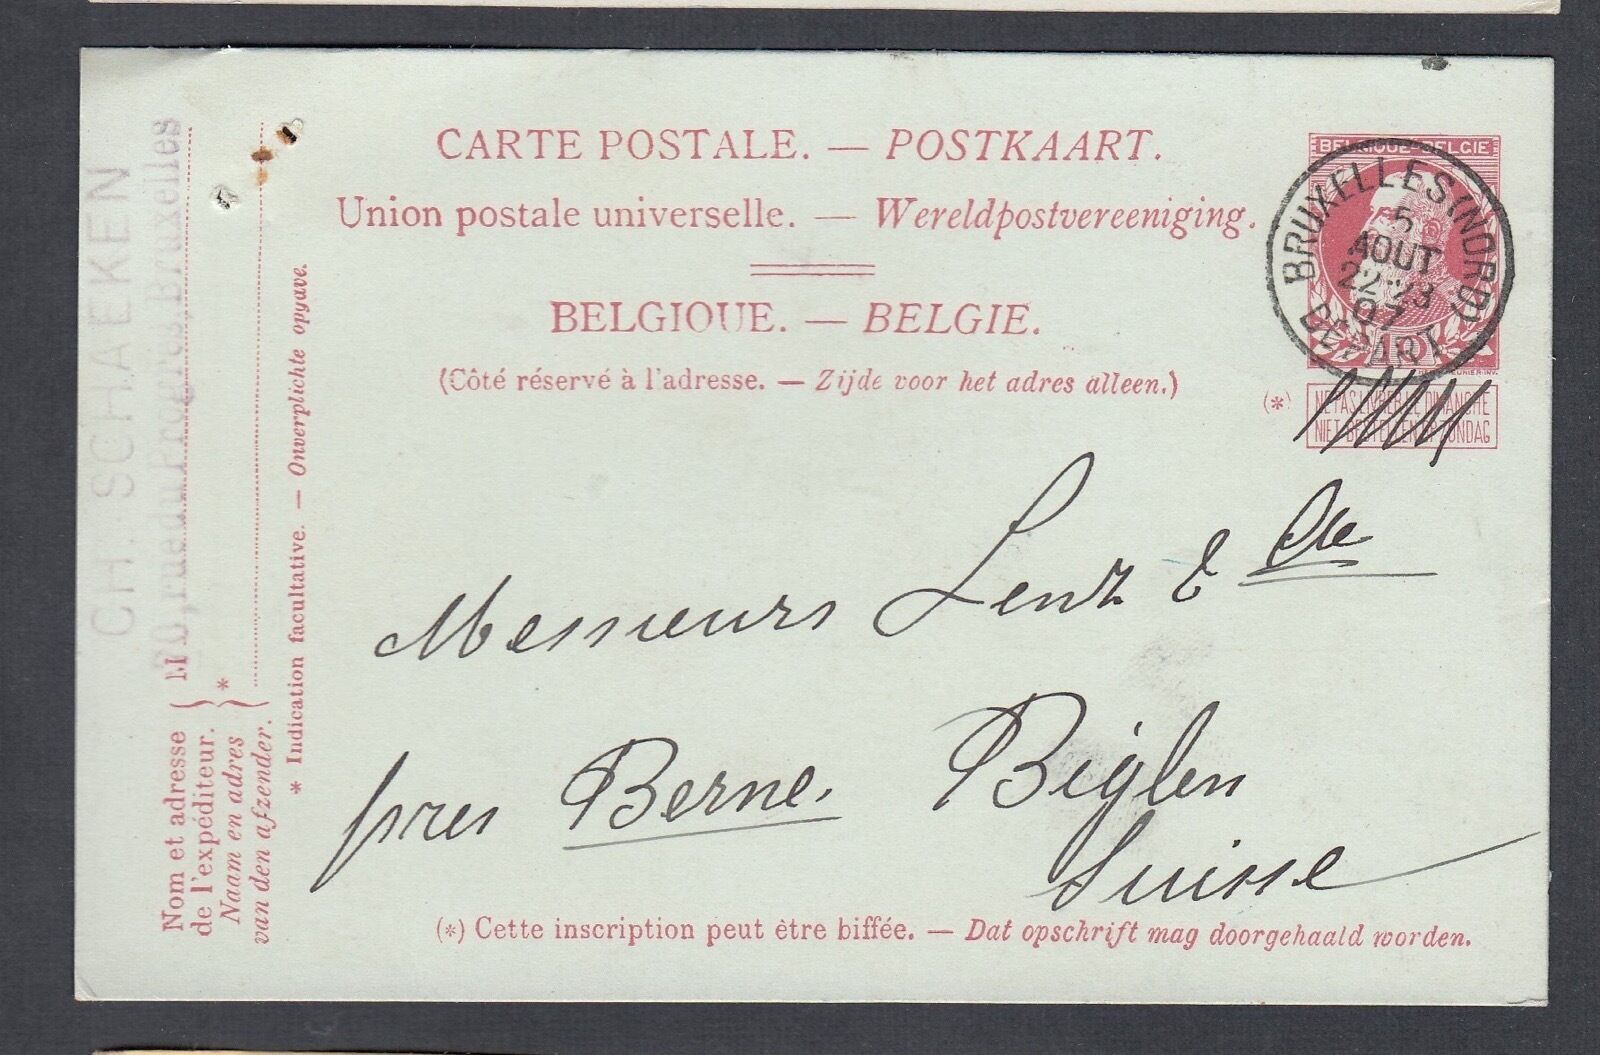 CARTE POSTALE. — POSTKAART.
Union postale universelle. — Wereldpostvereeniging.
BELGIQUE. — BELGIE.
(Côté réservé à l'adresse. — Zijde voor het adres alleen.)
BELGIQUE-BELGIE
BRUXELLES (NORD)
5
AOUT
22-23
07
DEPART
(*)
NE PAS LIVRER LE DIMANCHE
NIET BESTELLEN OP ZONDAG
Messieurs Lenz & Cie
près Berne. Biglen
Suisse
(*) Cette inscription peut être biffée. — Dat opschrift mag doorgehaald worden.
CH. SCHAEKEN
Bruxelles
M
Nom et adresse
de l'expéditeur.
Naam en adres
van den afzender.
*
* Indication facultative. — Onverplichte opgave.